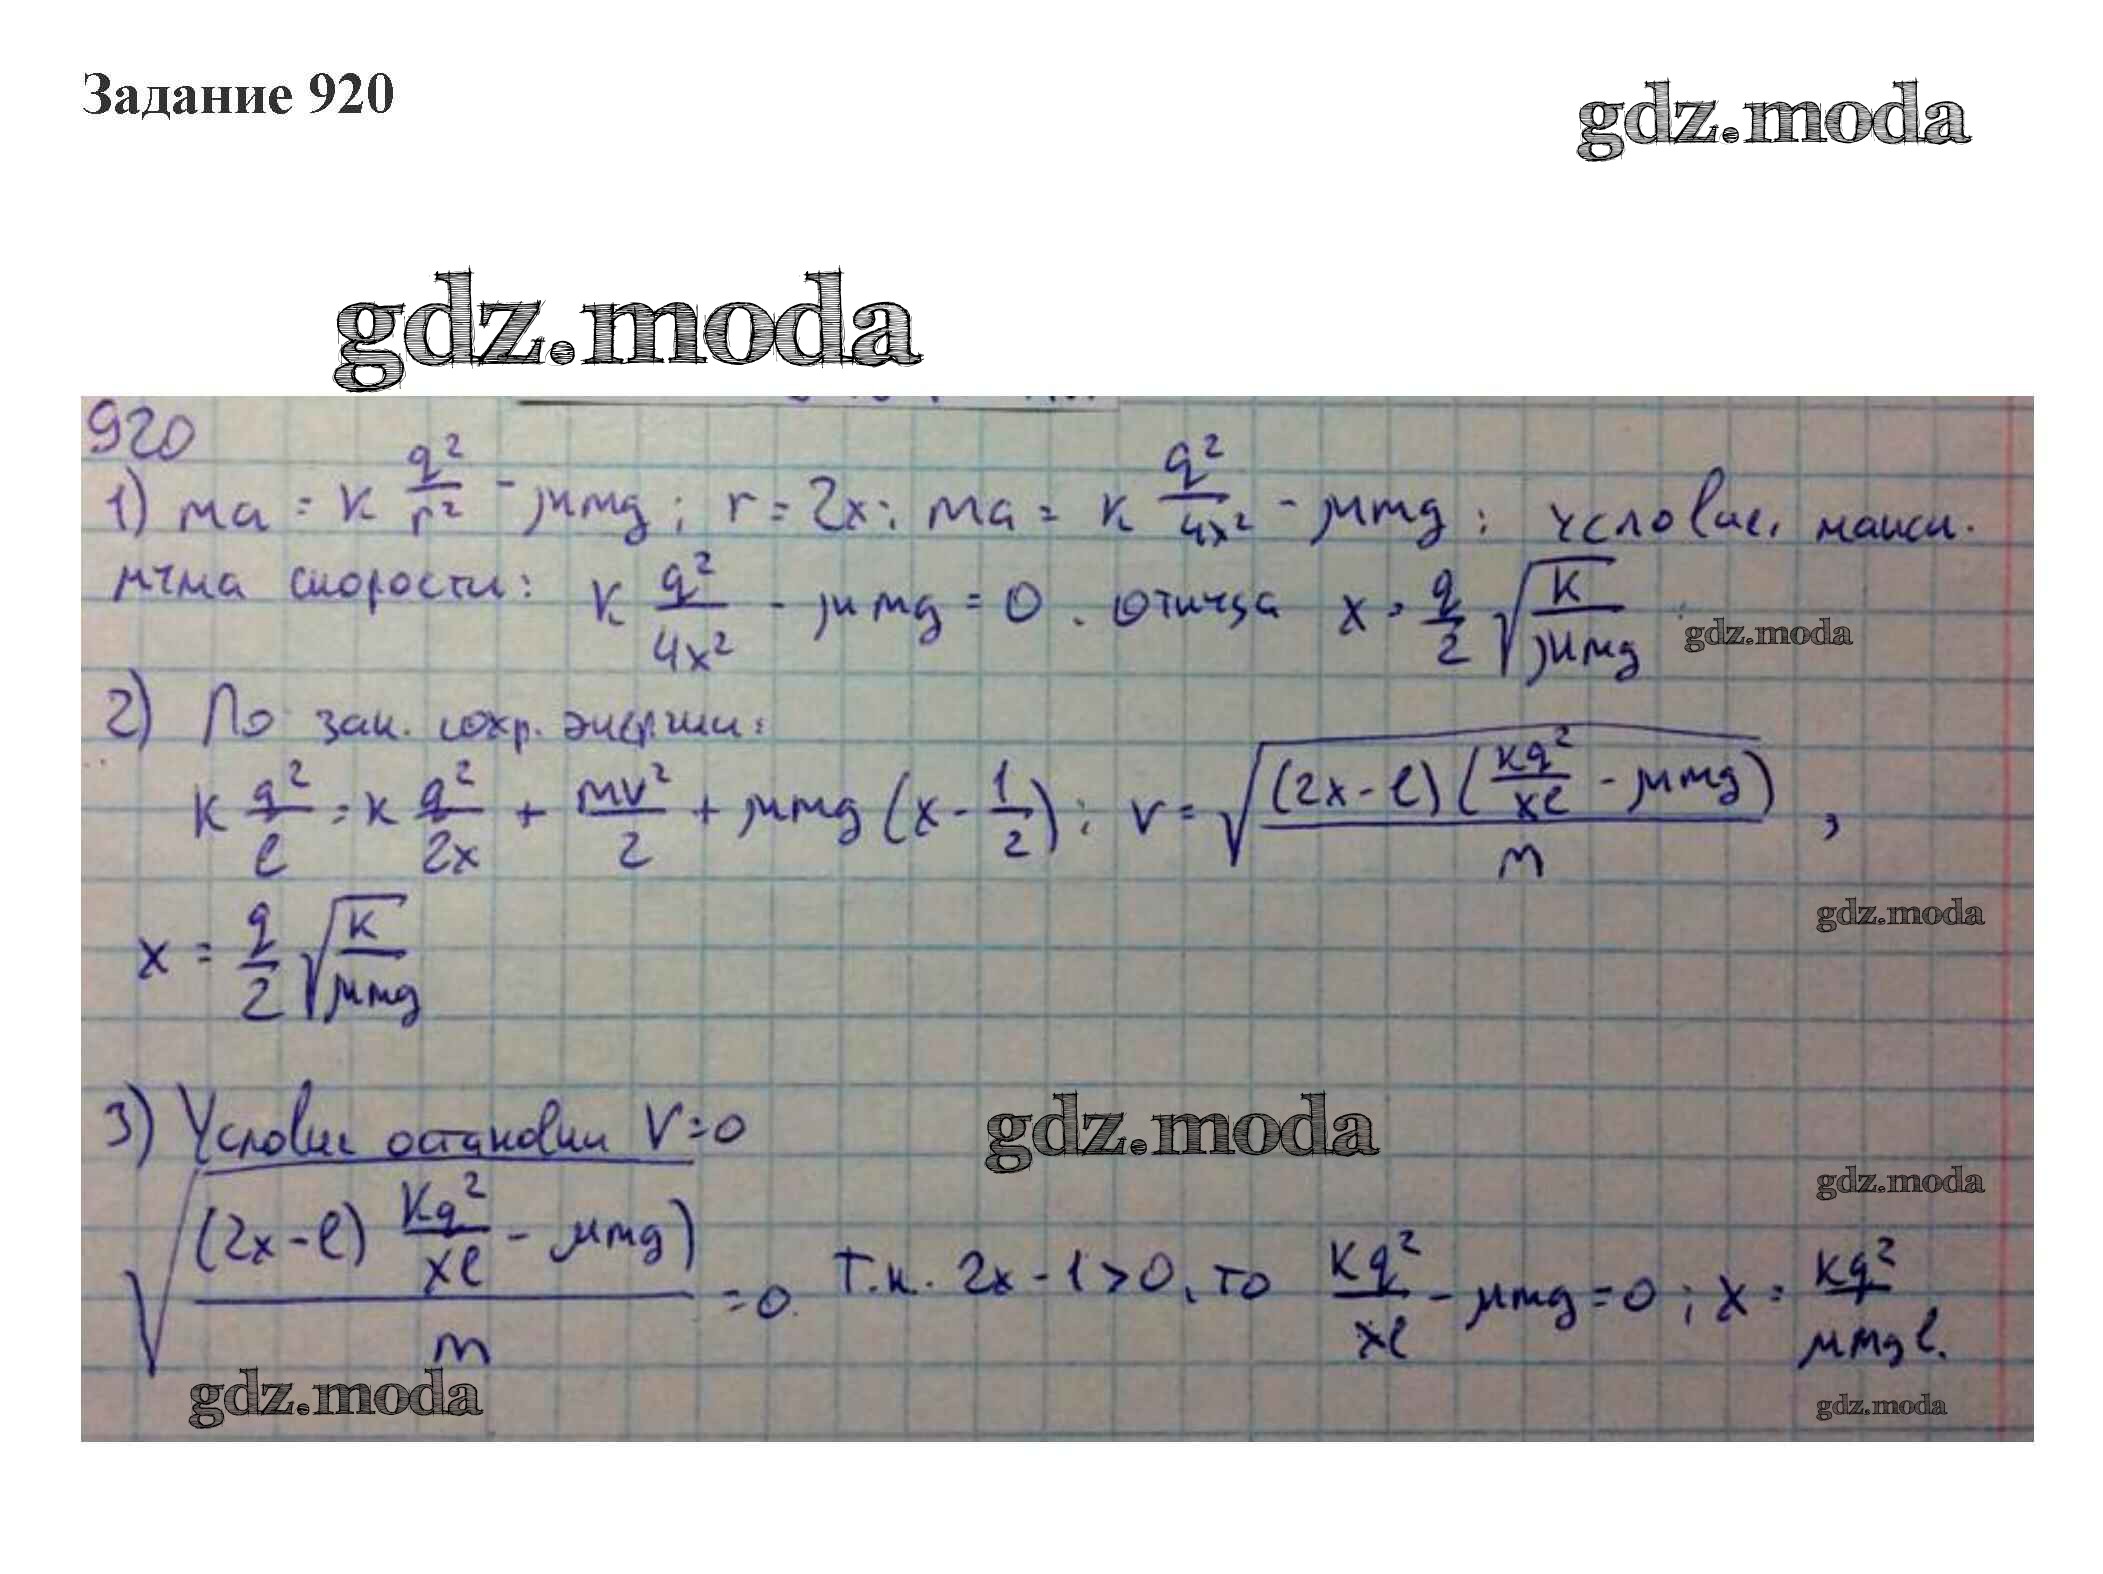 Задание 920
gdz.moda
gdz.moda
920
1) ma = k q²/r² - μmg; r = 2x; ma = k q²/4x² - μmg; условие макси-
мума скорости: k q²/4x² - μmg = 0. отсюда x = q/2 √(k/μmg)
gdz.moda
2) По зак. сохр. энергии:
k q²/l = k q²/2x + mv²/2 + μmg (x - 1/2); v = √((2x-l)(kq²/xl - μmg)/m),
gdz.moda
x = q/2 √(k/μmg)
3) Условие остановки V=0
gdz.moda
gdz.moda
√((2x-l) kq²/xl - μmg)/m) = 0. Т.к. 2x-1>0, то kq²/xl - μmg = 0; x = kq²/μmgl.
gdz.moda
gdz.moda